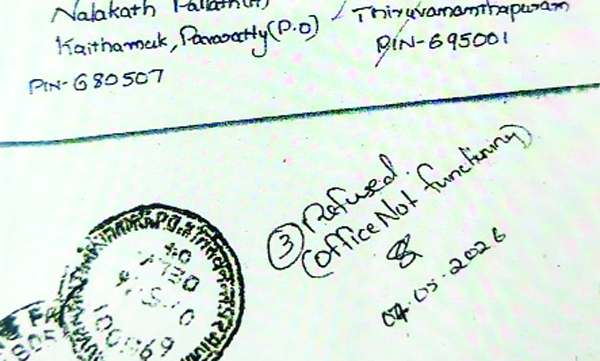 Nalakath Pallath(H)
Kaithamuk, Pavaratty(P.O)
PIN-680507
Thiruvananthapuram
PIN-695001
③ Refused.
(Office Not functioning)
04.05.2026